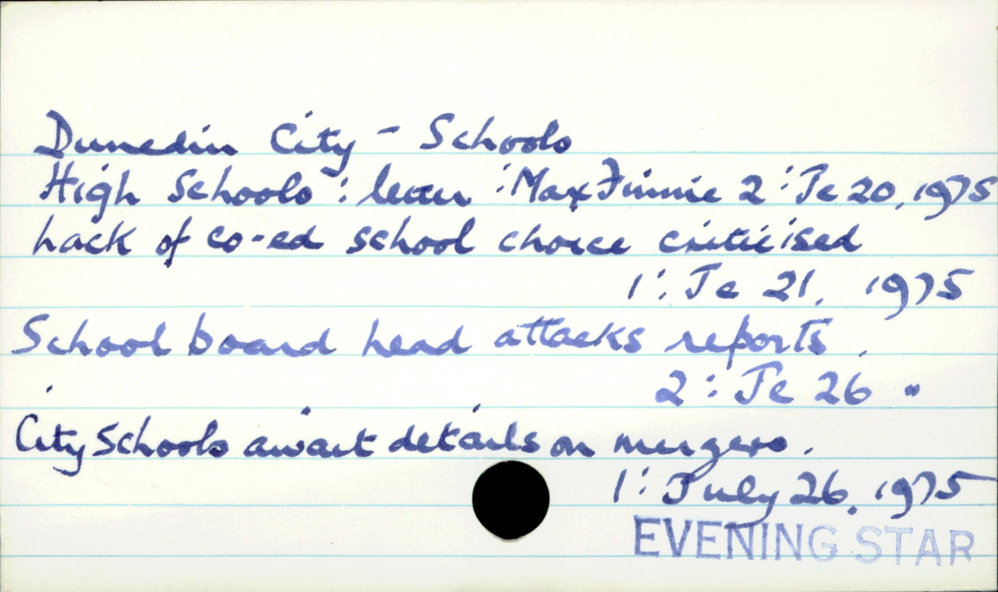 Dunedin City - Schools
High Schools : letter : Max Finnie 2 : Je 20, 1975
Lack of co-ed school choice criticised
1 : Je 21, 1975
School board head attacks reports.
2 : Je 26 "
City Schools await details on mergers.
1 : July 26, 1975
EVENING STAR